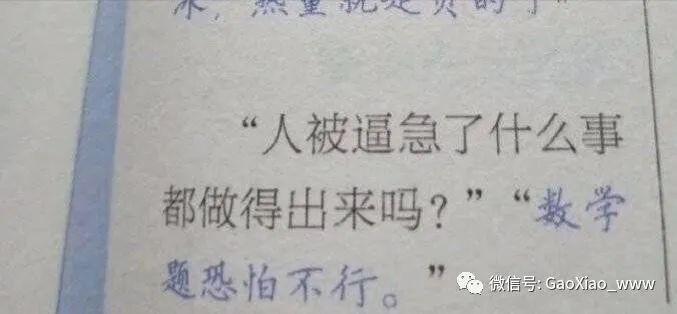 水，热量就是负的了”
“人被逼急了什么事
都做得出来吗？”“数学
题恐怕不行。”
微信号: GaoXiao_www